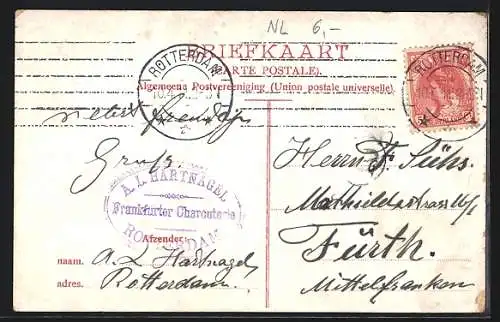 NL 6,-
BRIEFKAART
(CARTE POSTALE).
Algemeene Postvereeniging (Union postale universelle)
ROTTERDAM
ROTTERDAM
Gruss
A. L. HARTNAGEL
Frankfurter Charcuterie
ROTTERDAM
Afzender:
naam. A. L. Hartnagel
adres. Rotterdam
Herrn Fr. Sühs.
Mathildenstrasse
Fürth.
Mittelfranken